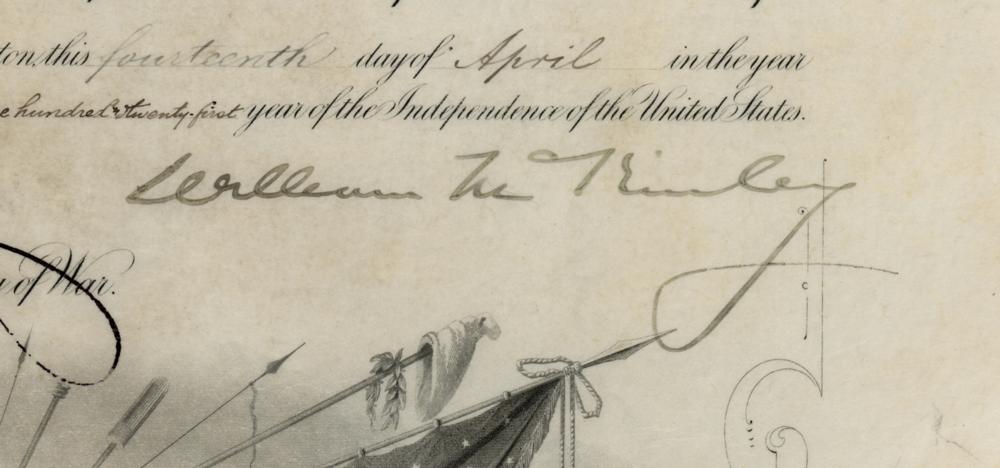 ton, this fourteenth day of April in the year
e hundred & twenty-first year of the Independence of the United States.
William McKinley
of War.